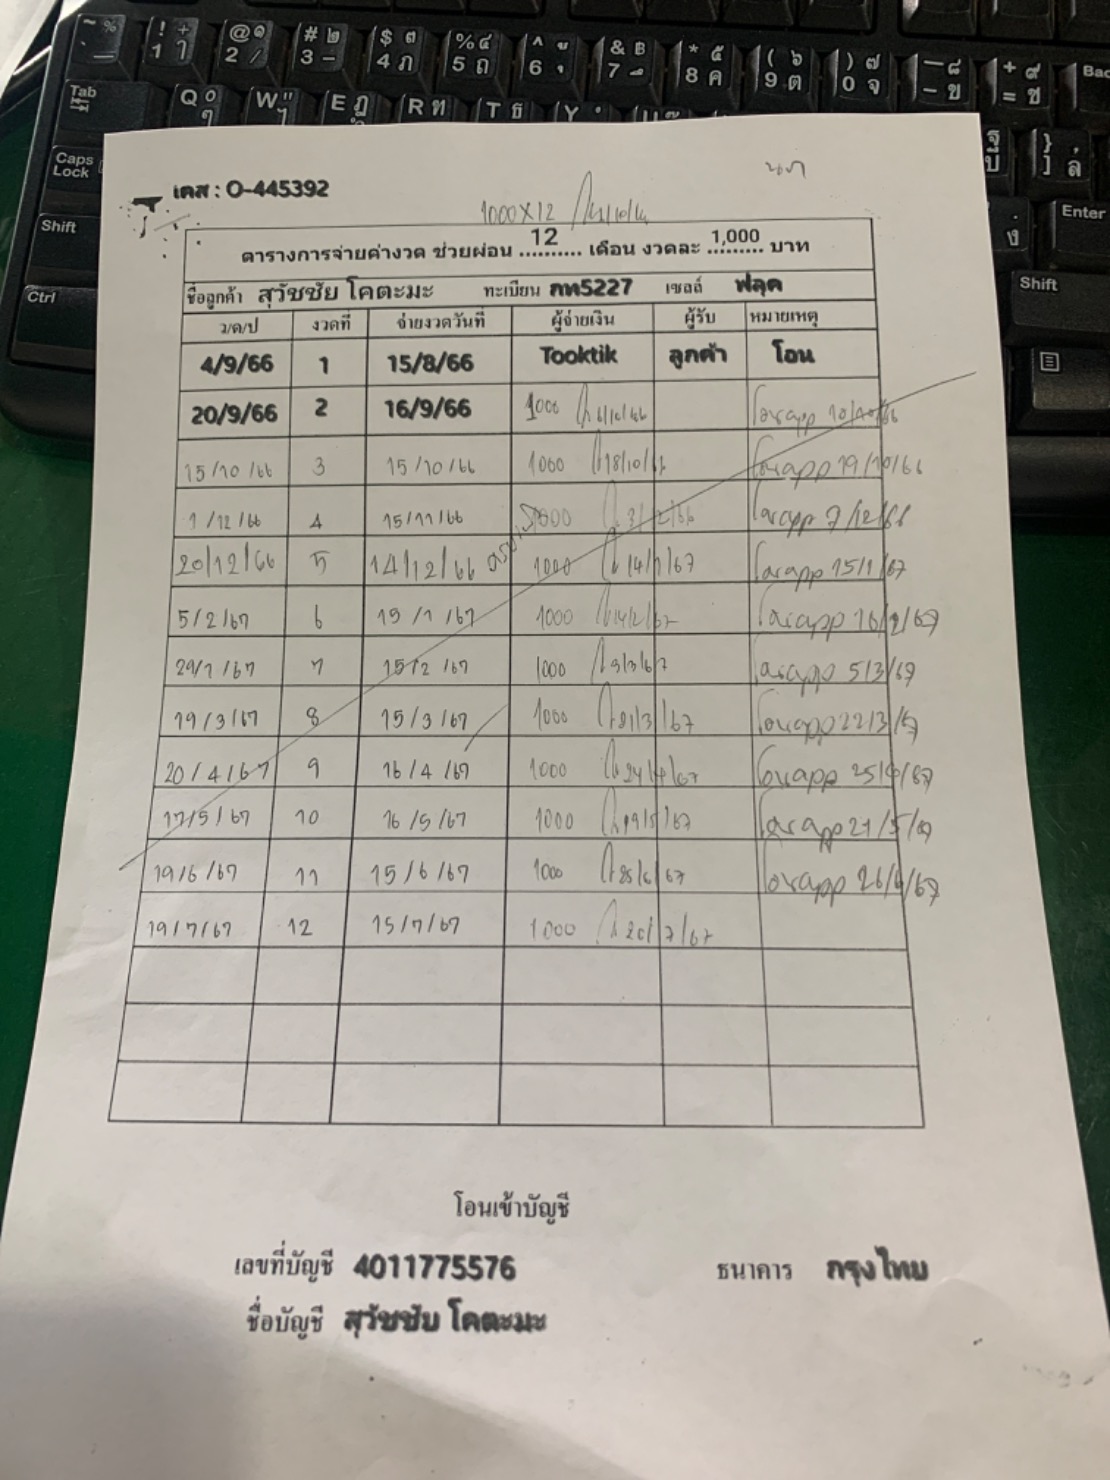 เคส : O-445392
1000X12
ตารางการจ่ายค่างวด ช่วยผ่อน ....12.... เดือน งวดละ ..1,000.. บาท
ชื่อลูกค้า สุวัชชัย โคตะมะ ทะเบียน กท5227 เซลล์ ฟลุค
ว/ด/ป งวดที่ จ่ายงวดวันที่ ผู้จ่ายเงิน ผู้รับ หมายเหตุ
4/9/66 1 15/8/66 Tooktik ลูกค้า โอน
20/9/66 2 16/9/66 1000 โอนapp 10/10/66
15/10/66 3 15/10/66 1000 18/10/66 โอนapp 19/10/66
1/12/66 4 15/11/66 1000 โอนapp 7/12/66
20/12/66 5 14/12/66 1000 14/1/67 โอนapp 15/1/67
5/2/67 6 15/1/67 1000 14/2/67 โอนapp 16/2/67
29/1/67 7 15/2/67 1000 โอนapp 5/3/67
19/3/67 8 15/3/67 1000 21/3/67 โอนapp 22/3/67
20/4/67 9 16/4/67 1000 24/4/67 โอนapp 25/4/67
17/5/67 10 16/5/67 1000 19/5/67 โอนapp 21/5/67
19/6/67 11 15/6/67 1000 25/6/67 โอนapp 26/6/67
19/7/67 12 15/7/67 1000 20/7/67
โอนเข้าบัญชี
เลขที่บัญชี 4011775576 ธนาคาร กรุงไทย
ชื่อบัญชี สุวัชชัย โคตะมะ